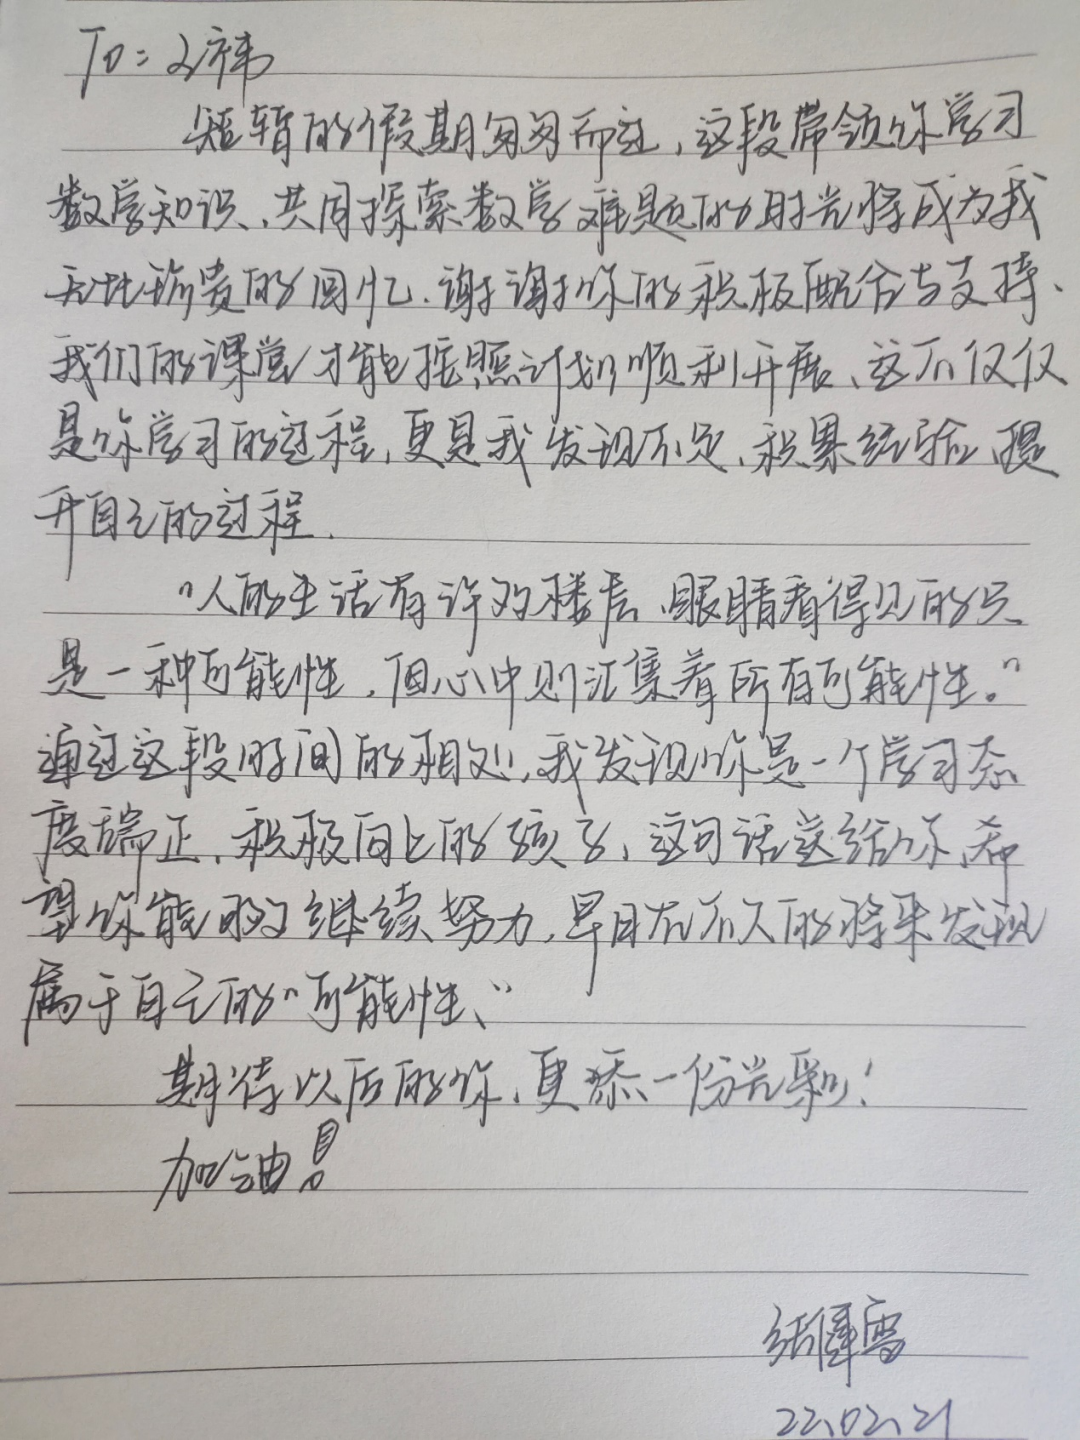 To: 文祎
短暂的假期匆匆而过，这段带领你学习
数学知识、共同探索数学难题的时光将成为我
无比珍贵的回忆.谢谢你的积极配合与支持、
我们的课堂才能按照计划顺利开展、这不仅仅
是你学习的过程,更是我发现不足、积累经验、提
升自己的过程.
“人的生活有许多楼层、眼睛看得见的只
是一种可能性，但心中则汇集着所有可能性。”
通过这段时间的相处,我发现你是一个学习态
度端正、积极向上的孩子、这句话送给你、希
望你能够继续努力,早日在不久的将来发现
属于自己的“可能性、”
期待以后的你、更添一份光彩!
加油!
22.02.21